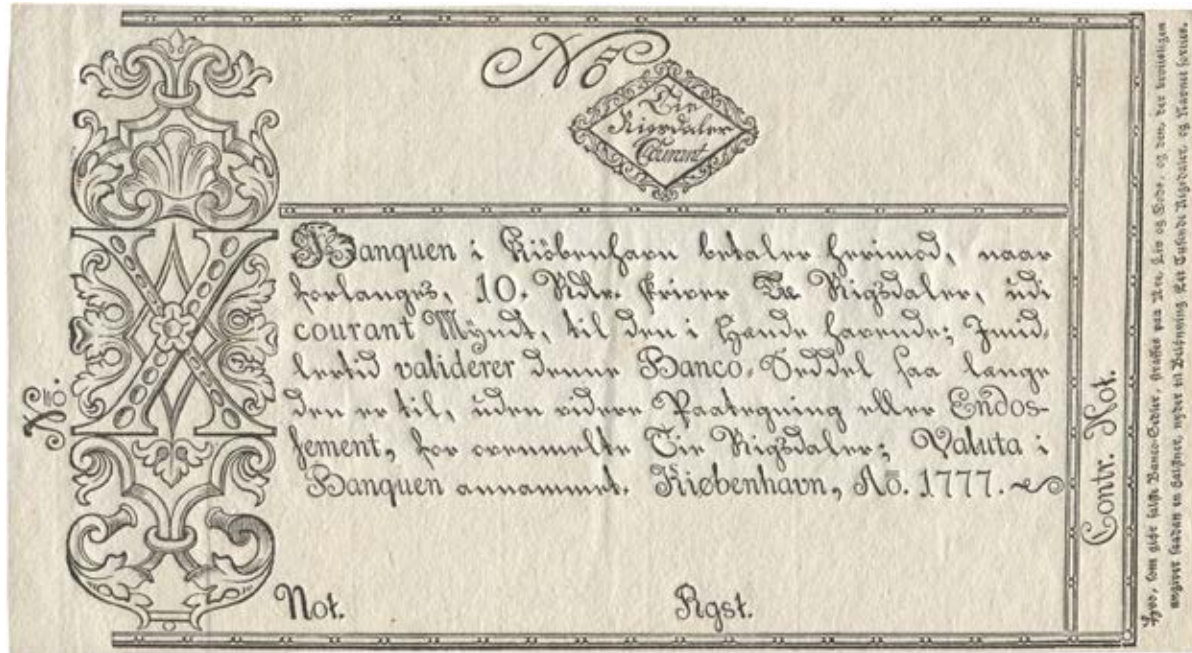 No
Tie
Rigsdaler
Courant
Banquen i Kiöbenhavn betaler herimod, naar
forlanges, 10. Rdlr. skriver Tie Rigsdaler, udi
courant Myndt, til den i Hænde havende; Imid-
lertid validerer denne Banco-Seddel saa længe
den er til, uden videre Paategning eller Endos-
sement, for ovenmelte Tie Rigsdaler; Valuta i
Banquen annammet. Kiøbenhavn, Aō. 1777.
Not. Rgst.
No.
X
Contr. Not.
Hvo, som giør falske Banco-Sedler, straffes paa Ære, Liv og Gods, og den, der beviisligen
angiver saadan en Falskner, nyder til Belønning Eet Tusinde Rigsdaler, og Navnet forties.